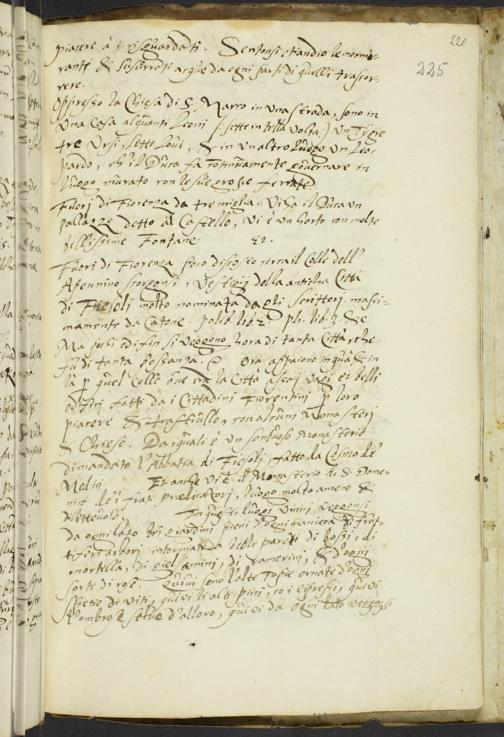 220
225
piacere à i risguardati. Sentonsi etiandio le
ranti & susurranti acque da ogni parti di quelli trascor-
rere.
Appresso la Chiesa di S. Marco in una strada, sono in
una Casa alquanti Leoni sette in tutto un Tigre
tre Orsi, sette Lupi, & in un altro luogo un Leo-
pardo, ch' il Duca fa continuamente governare in
luogo murato con le sue grosse ferrate.
Fuori di Fiorenza da tre miglia vi ha il Duca un
pallazzo detto il Castello, vi è un horto con molte
bellissime Fontane &c.
Fuori di Fiorenza poco discosto circa il Colle dell'
Apennino scorgonsi i Vestigij della anticha Città
di Fiesoli molto nominata da gli scrittori massi-
mamente da Catone. Polib. lib. 2. Pli. lib. 3. &c
Ma pochi edifici si veggono hora di tanta Città, che
fù di tanta possanza. Ora appaiono in quà & in
là p quel Colle ove era la Città assai vagi et belli
edificj fatti da i Cittadini Fiorentini p loro
piacere & trastullo, con alcuni Monasterj
& Chiese. Da quali è un sontuoso Monasterio
dimandato l'Abbatia di Fiesoli, fatto da Cosmo de'
Medici. Et anche vi è il Monasterio di S. Dome-
nico de i frati predicatori, luogo molto ameno &
dilettevole. In questi luogi vicini, veggonsi
da ogni lato bei giardini pieni d'ogni maniera di frut-
tiferi arbori intorniate da belle pareti di bossi, di
mortella, di gielsamini, di ramerini, & d'ogni
sorte di rose. Quivi sono l'alte Topie ornate d'ogni
spetie di viti, quivi li alti pini, co i cipressi, quivi
l'ombrose selve d'alloro, quivi da ogni lato veggonsi